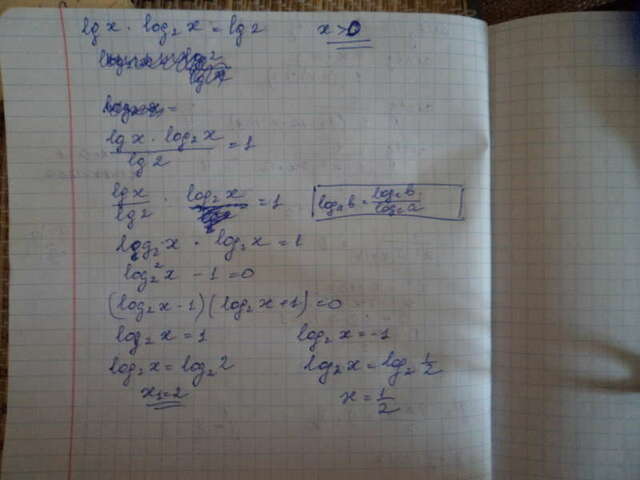 lg x · log₂ x = lg 2    x > 0
lg x · log₂ x / lg 2 = 1
lg x / lg 2 · log₂ x = 1    logₐ b = log꜀ b / log꜀ a
log₂ x · log₂ x = 1
log₂² x - 1 = 0
(log₂ x - 1)(log₂ x + 1) = 0
log₂ x = 1    log₂ x = -1
log₂ x = log₂ 2    log₂ x = log₂ 1/2
x₁ = 2    x = 1/2